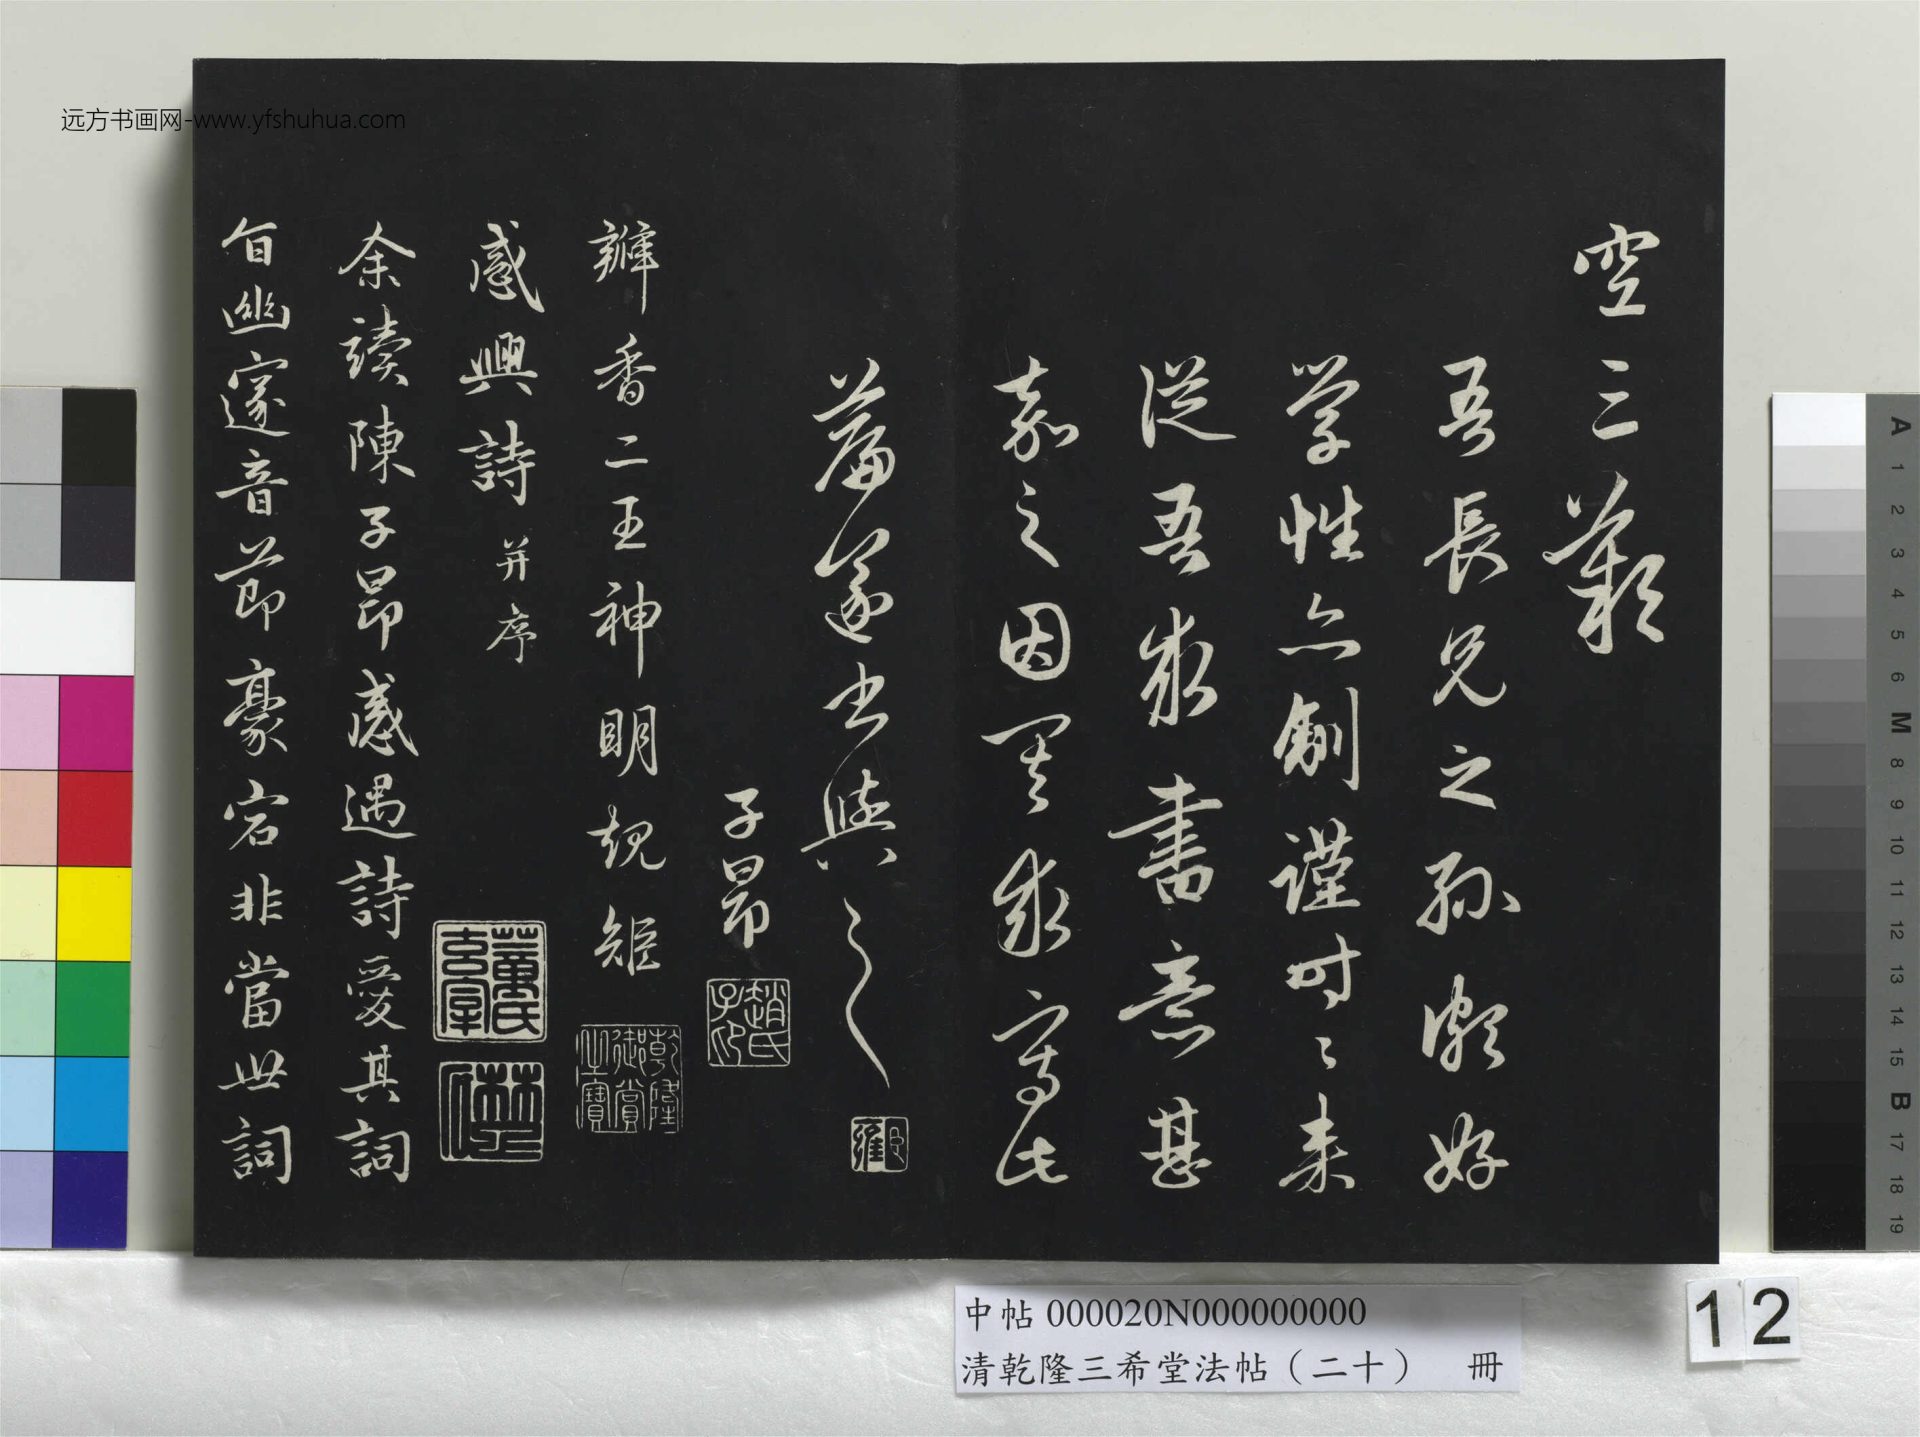 空三歎
吾長兄之孫頗好
学性亦劀謹時〻来
従吾求書意甚
嘉之因其求寫此
篇遂書與之
子昂
瓣香二王神明規矩
感興詩 并序
余讀陳子昂感遇詩愛其詞
旨幽邃音節豪宕非當世詞
趙氏子印
乾隆御賞之寶
远方书画网-www.yfshuhua.com
中帖 000020N000000000
清乾隆三希堂法帖（二十） 冊
12
A 1 2 3 4 5 6 M 8 9 10 11 12 13 14 15 B 17 18 19